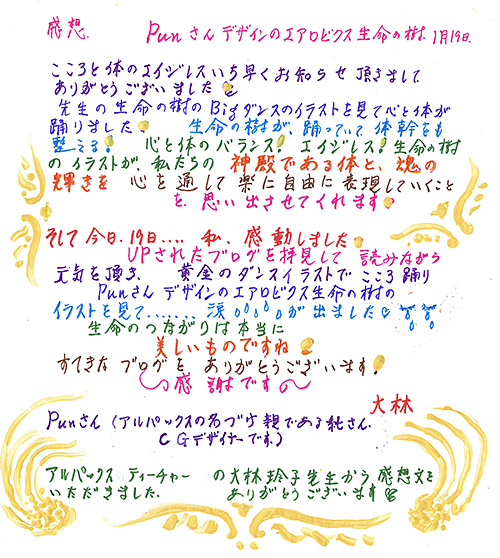 感想. Punさん デザインのエアロビクス生命の樹. 1月19日.
こころと体のエイジレスいち早くお知らせ頂きまして
ありがとうございました
先生の生命の樹のBigダンスのイラストを見て心と体が
踊りました 生命の樹が、踊っていて体幹をも
整える! 心と体のバランス! エイジレス! 生命の樹
のイラストが、私たちの 神殿である体と、魂の
輝きを 心を通して楽に自由に表現していくこと
を 思い出させてくれます
そして今日、19日.... 私、感動しました
UPされたブログを拝見して 読みながら
元気を頂き、 黄金のダンスイラストで こころ踊り
Punさん デザインのエアロビクス生命の樹の
イラストを見て....... 涙 が出ました
生命のつながりは本当に
美しいものですね
すてきなブログを ありがとうございます!
感謝です
大林
Punさん (アルパックスの名づけ親である純さん.
CGデザイナーです.)
アルパックス ティーチャー の大林玲子先生から感想文を
いただきました. ありがとうございます